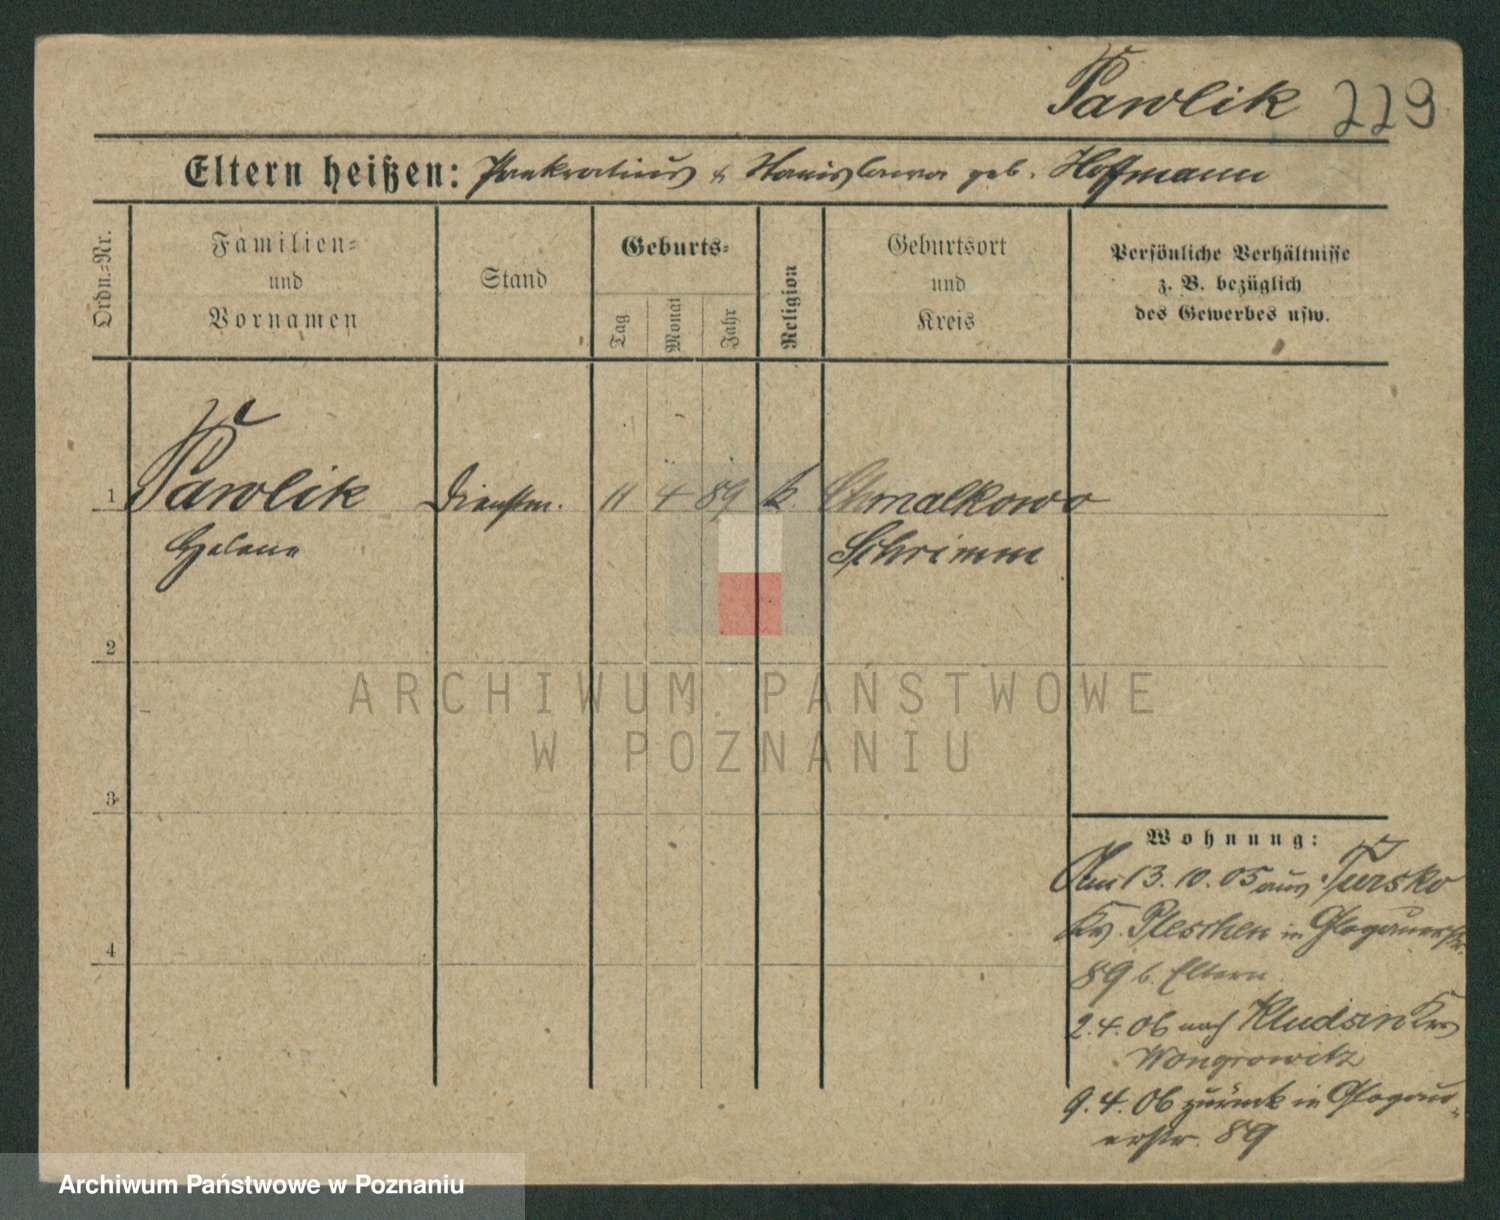 Pawlik 229
Eltern heißen: Pankratius & Stanislawa geb. Hoffmann
Ordn.-Nr.
Familien-
und
Vornamen
Stand
Geburts-
Tag
Monat
Jahr
Religion
Geburtsort
und
Kreis
Persönliche Verhältnisse
z. B. bezüglich
des Gewerbes usw.
1 Pawlik Dienstm. 11 4 89 k. Chmalkowo
Helene Schrimm
2
ARCHIWUM PAŃSTWOWE
W POZNANIU
3
Wohnung:
Am 13. 10. 05 aus Tursko
Kr. Pleschen in Glogauerstr.
4
89 b. Eltern
2. 4. 06 nach Kludsin Krs
Wongrowitz
9. 4. 06 zurück in Glogau-
erstr. 89
Archiwum Państwowe w Poznaniu